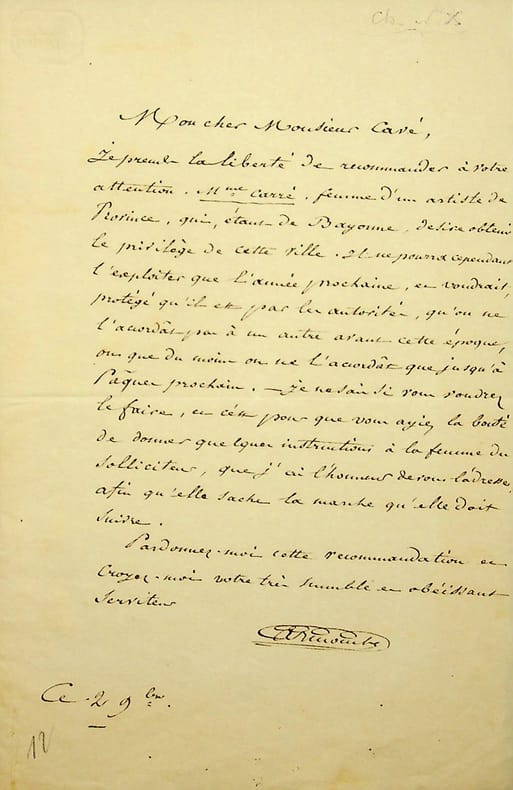 Mon cher Monsieur Cavé,
Je prends la liberté de recommander à votre
attention, Mme Carré, femme d'un artiste de
Province, qui, étant de Bayonne, desire obtenir
le privilège de cette ville. Il ne pourra cependant
l'exploiter que l'année prochaine, et voudrait,
protégé qu'il est par les autorités, qu'on ne
l'accordât pas à un autre avant cette époque,
ou que du moins on ne l'accordât que jusqu'à
Pâques prochain. — Je ne sais si vous voudrez
le faire, et c'est pour que vous ayiez la bonté
de donner quelques instructions à la femme du
solliciteur, que j'ai l'honneur de vous l'adresser,
afin qu'elle sache la marche qu'elle doit
suivre.
Pardonnez-moi cette recommandation et
croyez-moi votre très humble et obéissant
serviteur
Ce 2 9bre.
12